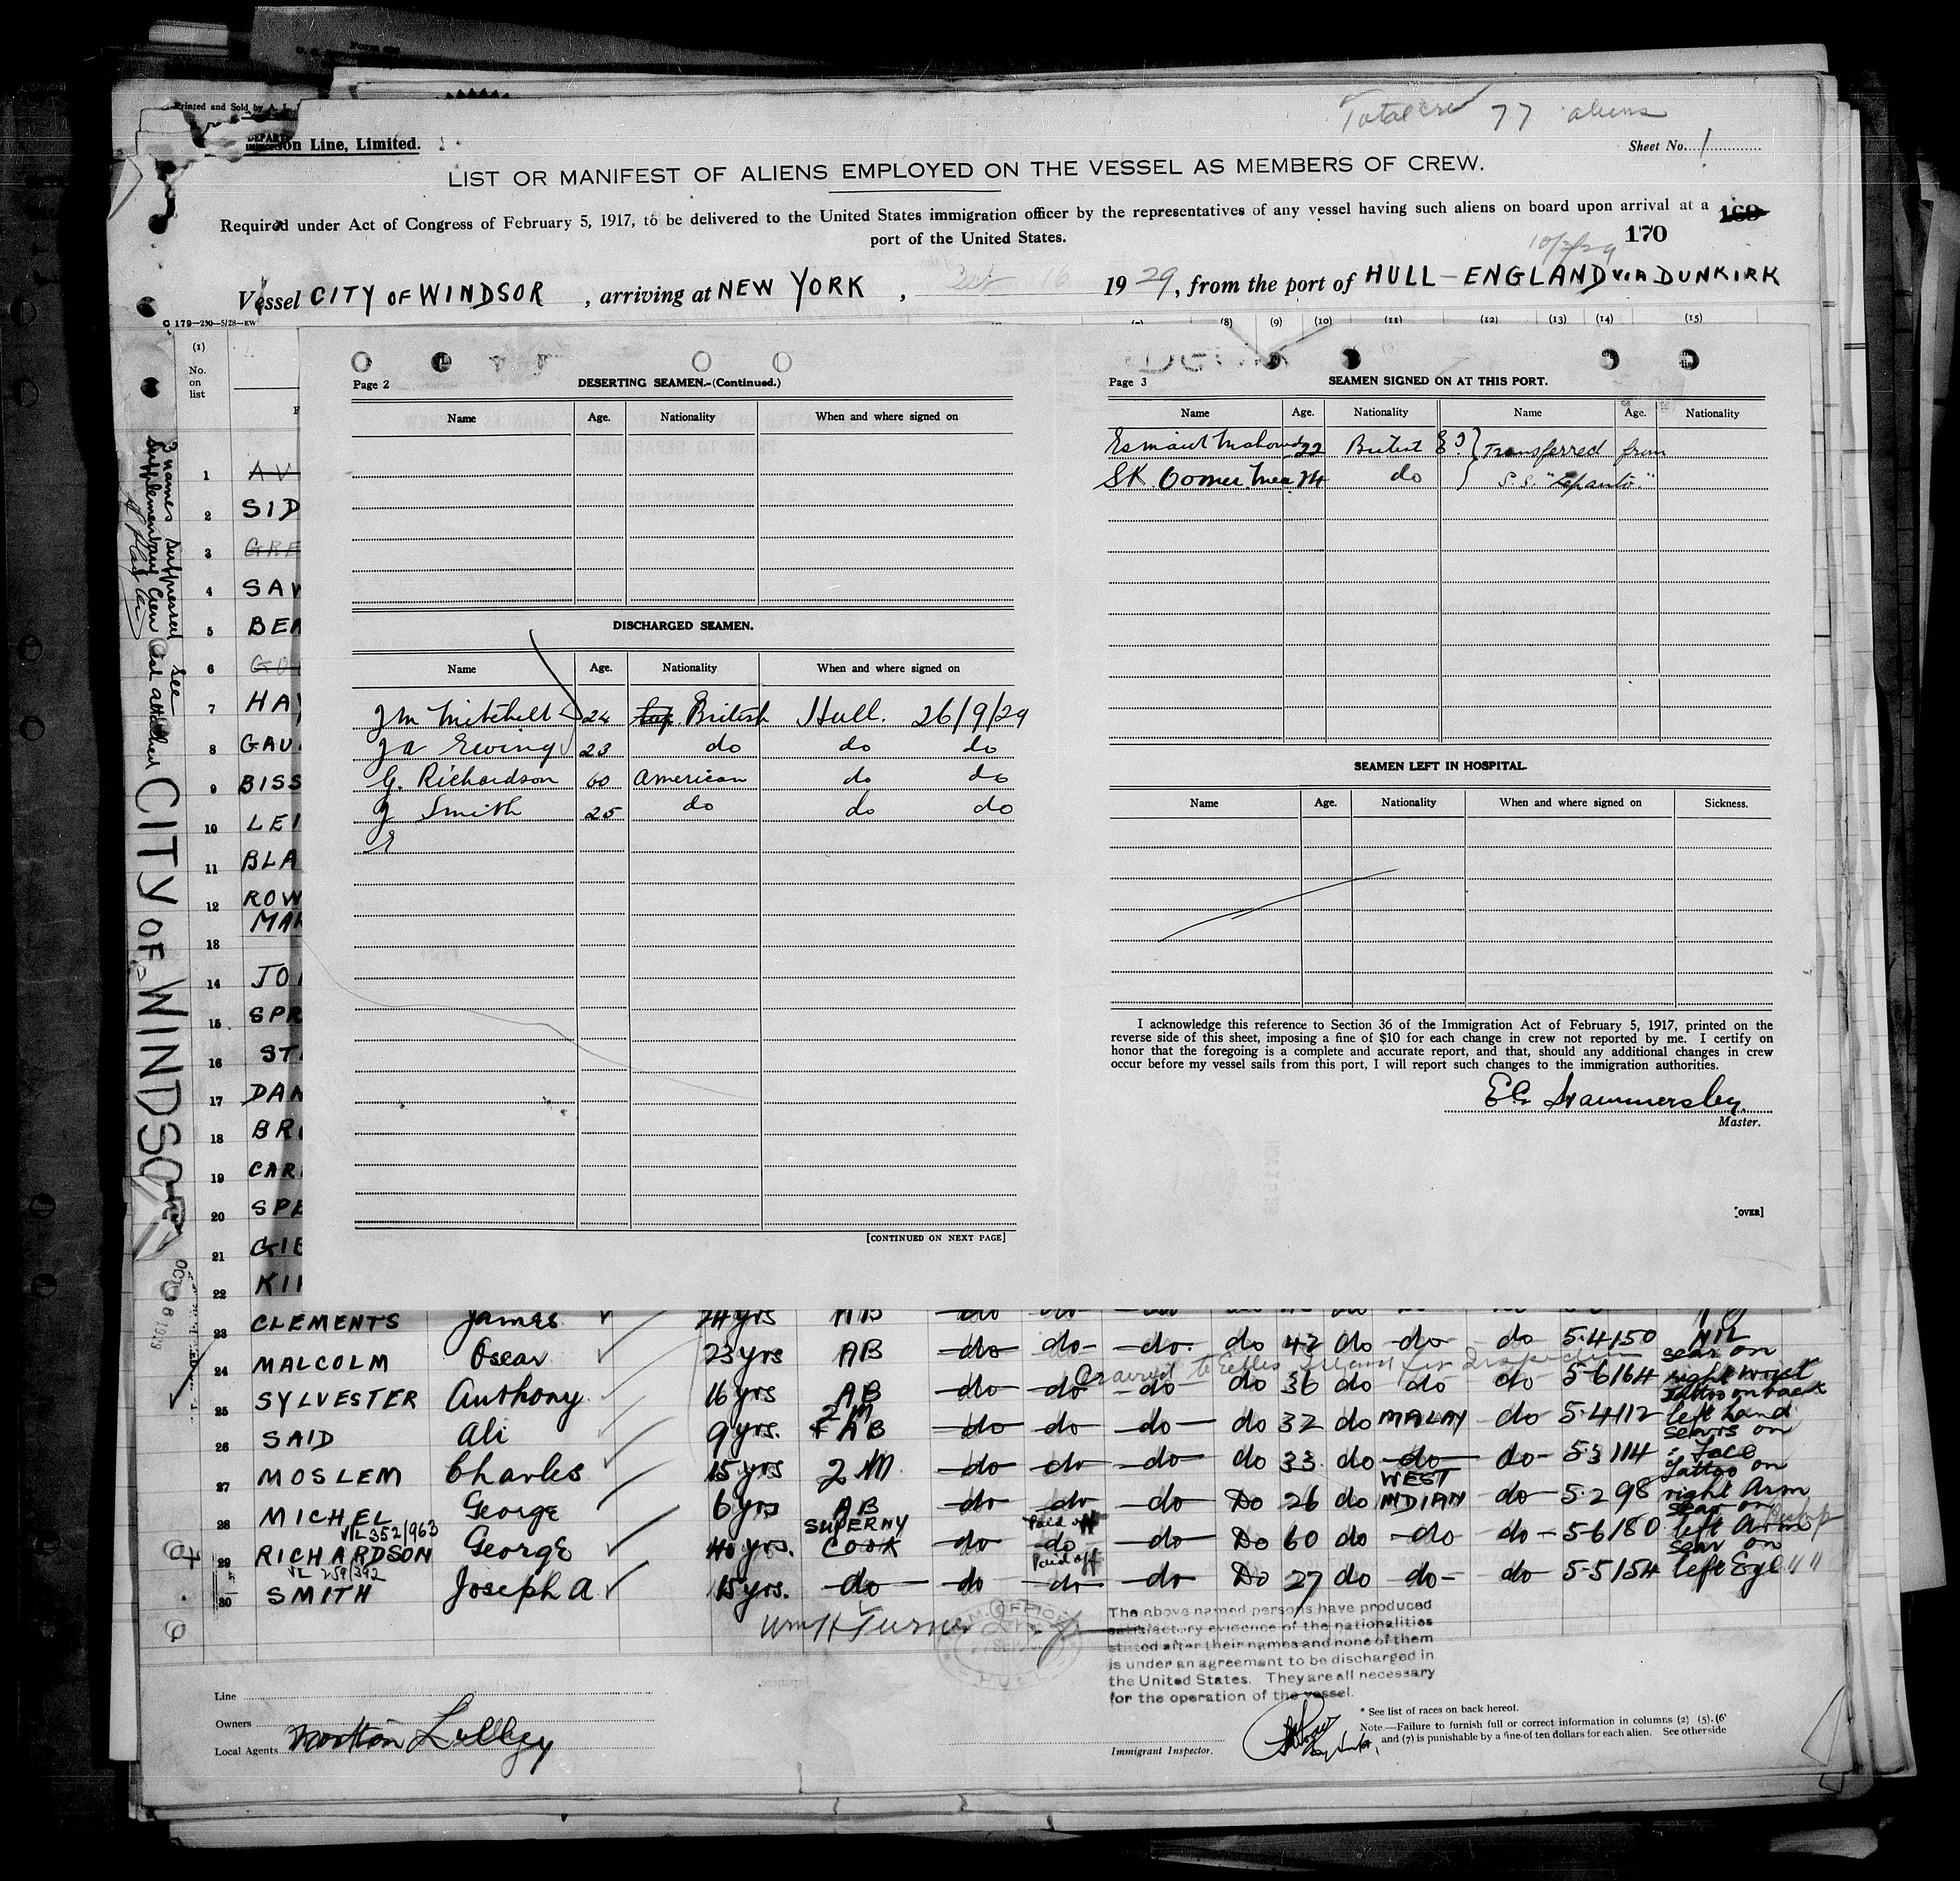 Printed and Sold by A. L.
DEPART
son Line, Limited.
Total crew 77 aliens
Sheet No. 1
LIST OR MANIFEST OF ALIENS EMPLOYED ON THE VESSEL AS MEMBERS OF CREW.
Required under Act of Congress of February 5, 1917, to be delivered to the United States immigration officer by the representatives of any vessel having such aliens on board upon arrival at a
port of the United States.
170
Vessel CITY OF WINDSOR, arriving at NEW YORK, Oct 16 1929, from the port of HULL - ENGLAND VIA DUNKIRK
G 179-250-5/28-EW
(8) (9) (10) (11) (12) (13) (14) (15)
(1)
No.
on
list
3 names suppressed see
Supplementary Crew List attached
CITY OF WINDSOR
Page 2
DESERTING SEAMEN.-(Continued.)
Name Age. Nationality When and where signed on
DISCHARGED SEAMEN.
Name Age. Nationality When and where signed on
J M Mitchell 24 British Hull. 26/9/29
J A Ewing 23 do do do
G. Richardson 60 American do do
J Smith 25 do do do
[CONTINUED ON NEXT PAGE]
Page 3
SEAMEN SIGNED ON AT THIS PORT.
Name Age. Nationality Name Age. Nationality
22 British Transferred from
SK Oomer 24 do S.S. "Lepanto"
SEAMEN LEFT IN HOSPITAL.
Name Age. Nationality When and where signed on Sickness.
I acknowledge this reference to Section 36 of the Immigration Act of February 5, 1917, printed on the
reverse side of this sheet, imposing a fine of $10 for each change in crew not reported by me. I certify on
honor that the foregoing is a complete and accurate report, and that, should any additional changes in crew
occur before my vessel sails from this port, I will report such changes to the immigration authorities.
E.G. Hammersley
Master.
[OVER]
1 AV
2 SID
3 GRE
4 SAW
5 BEA
6 GO
7 HAY
8 GAU
9 BISS
10 LEI
11 BLA
12 ROW
MAR
13
14 JO
15 SPR
16 ST
17 DAN
18 BRI
19 CAR
20 SPE
21 GIB
22 KI
23 CLEMENTS James 24 yrs AB do do do
24 MALCOLM Oscar 23 yrs AB do do do do 42 do do do 5-4 150 NIL
25 SYLVESTER Anthony 16 yrs AB do do do do 36 do do do 5-6 164 scar on right wrist
26 SAID Ali 9 yrs. AB do do do do 32 do MALAY do 5-4 112 Tattoo on back left hand
27 MOSLEM Charles 15 yrs 2 M do do do do 33 do do do 5-3 114 scars on face
28 MICHEL George 6 yrs AB do do do Do 26 do WEST INDIAN do 5-2 98 Tattoo on right Arm
V/L 352/963
29 RICHARDSON George 40 yrs. SUPERNY COOK do Paid off do do Do 60 do do do 5-6 180 scar on left Arm
VL 259/392
30 SMITH Joseph A 15 yrs. do do Paid off do do Do 27 do do do 5-5 154 scar on left Eye " "
Wm H Turner
The above named persons have produced
satisfactory evidence of the nationalities
stated after their names and none of them
is under an agreement to be discharged in
the United States. They are all necessary
for the operation of the vessel.
Line
Owners
Local Agents Norton Lilley
Immigrant Inspector.
* See list of races on back hereof.
Note.—Failure to furnish full or correct information in columns (2) (5) (6
and (7) is punishable by a fine of ten dollars for each alien. See otherside